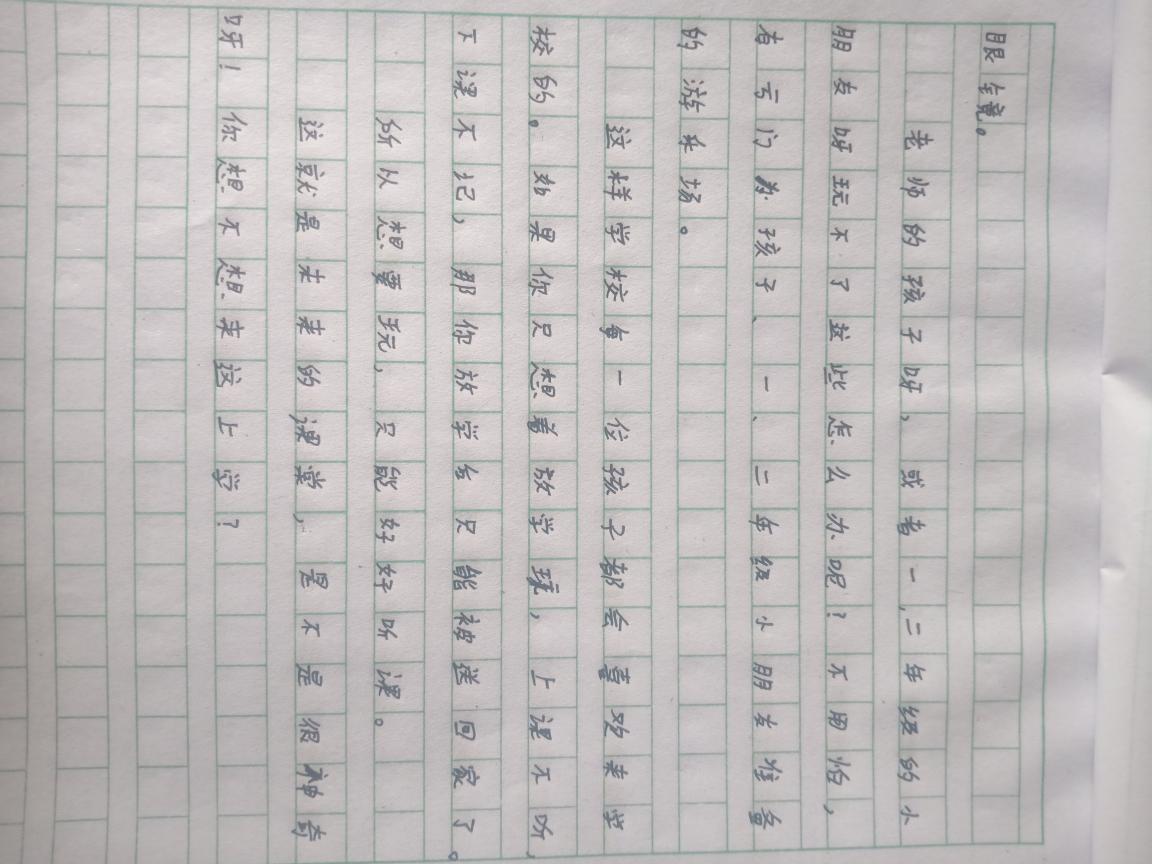 眼镜。
老师的孩子呀，或者一、二年级的小
朋友呀玩不了这些怎么办呢？不用怕，
有专门为孩子、一、二年级小朋友准备
的游乐场。
这样学校每一位孩子都会喜欢来学
校的。如果你只想着放学玩，上课不听，
下课不记，那你放学后只能被送回家了。
所以想要玩，只能好好听课。
这就是未来的课堂，是不是很神奇
呀！你想不想来这上学？